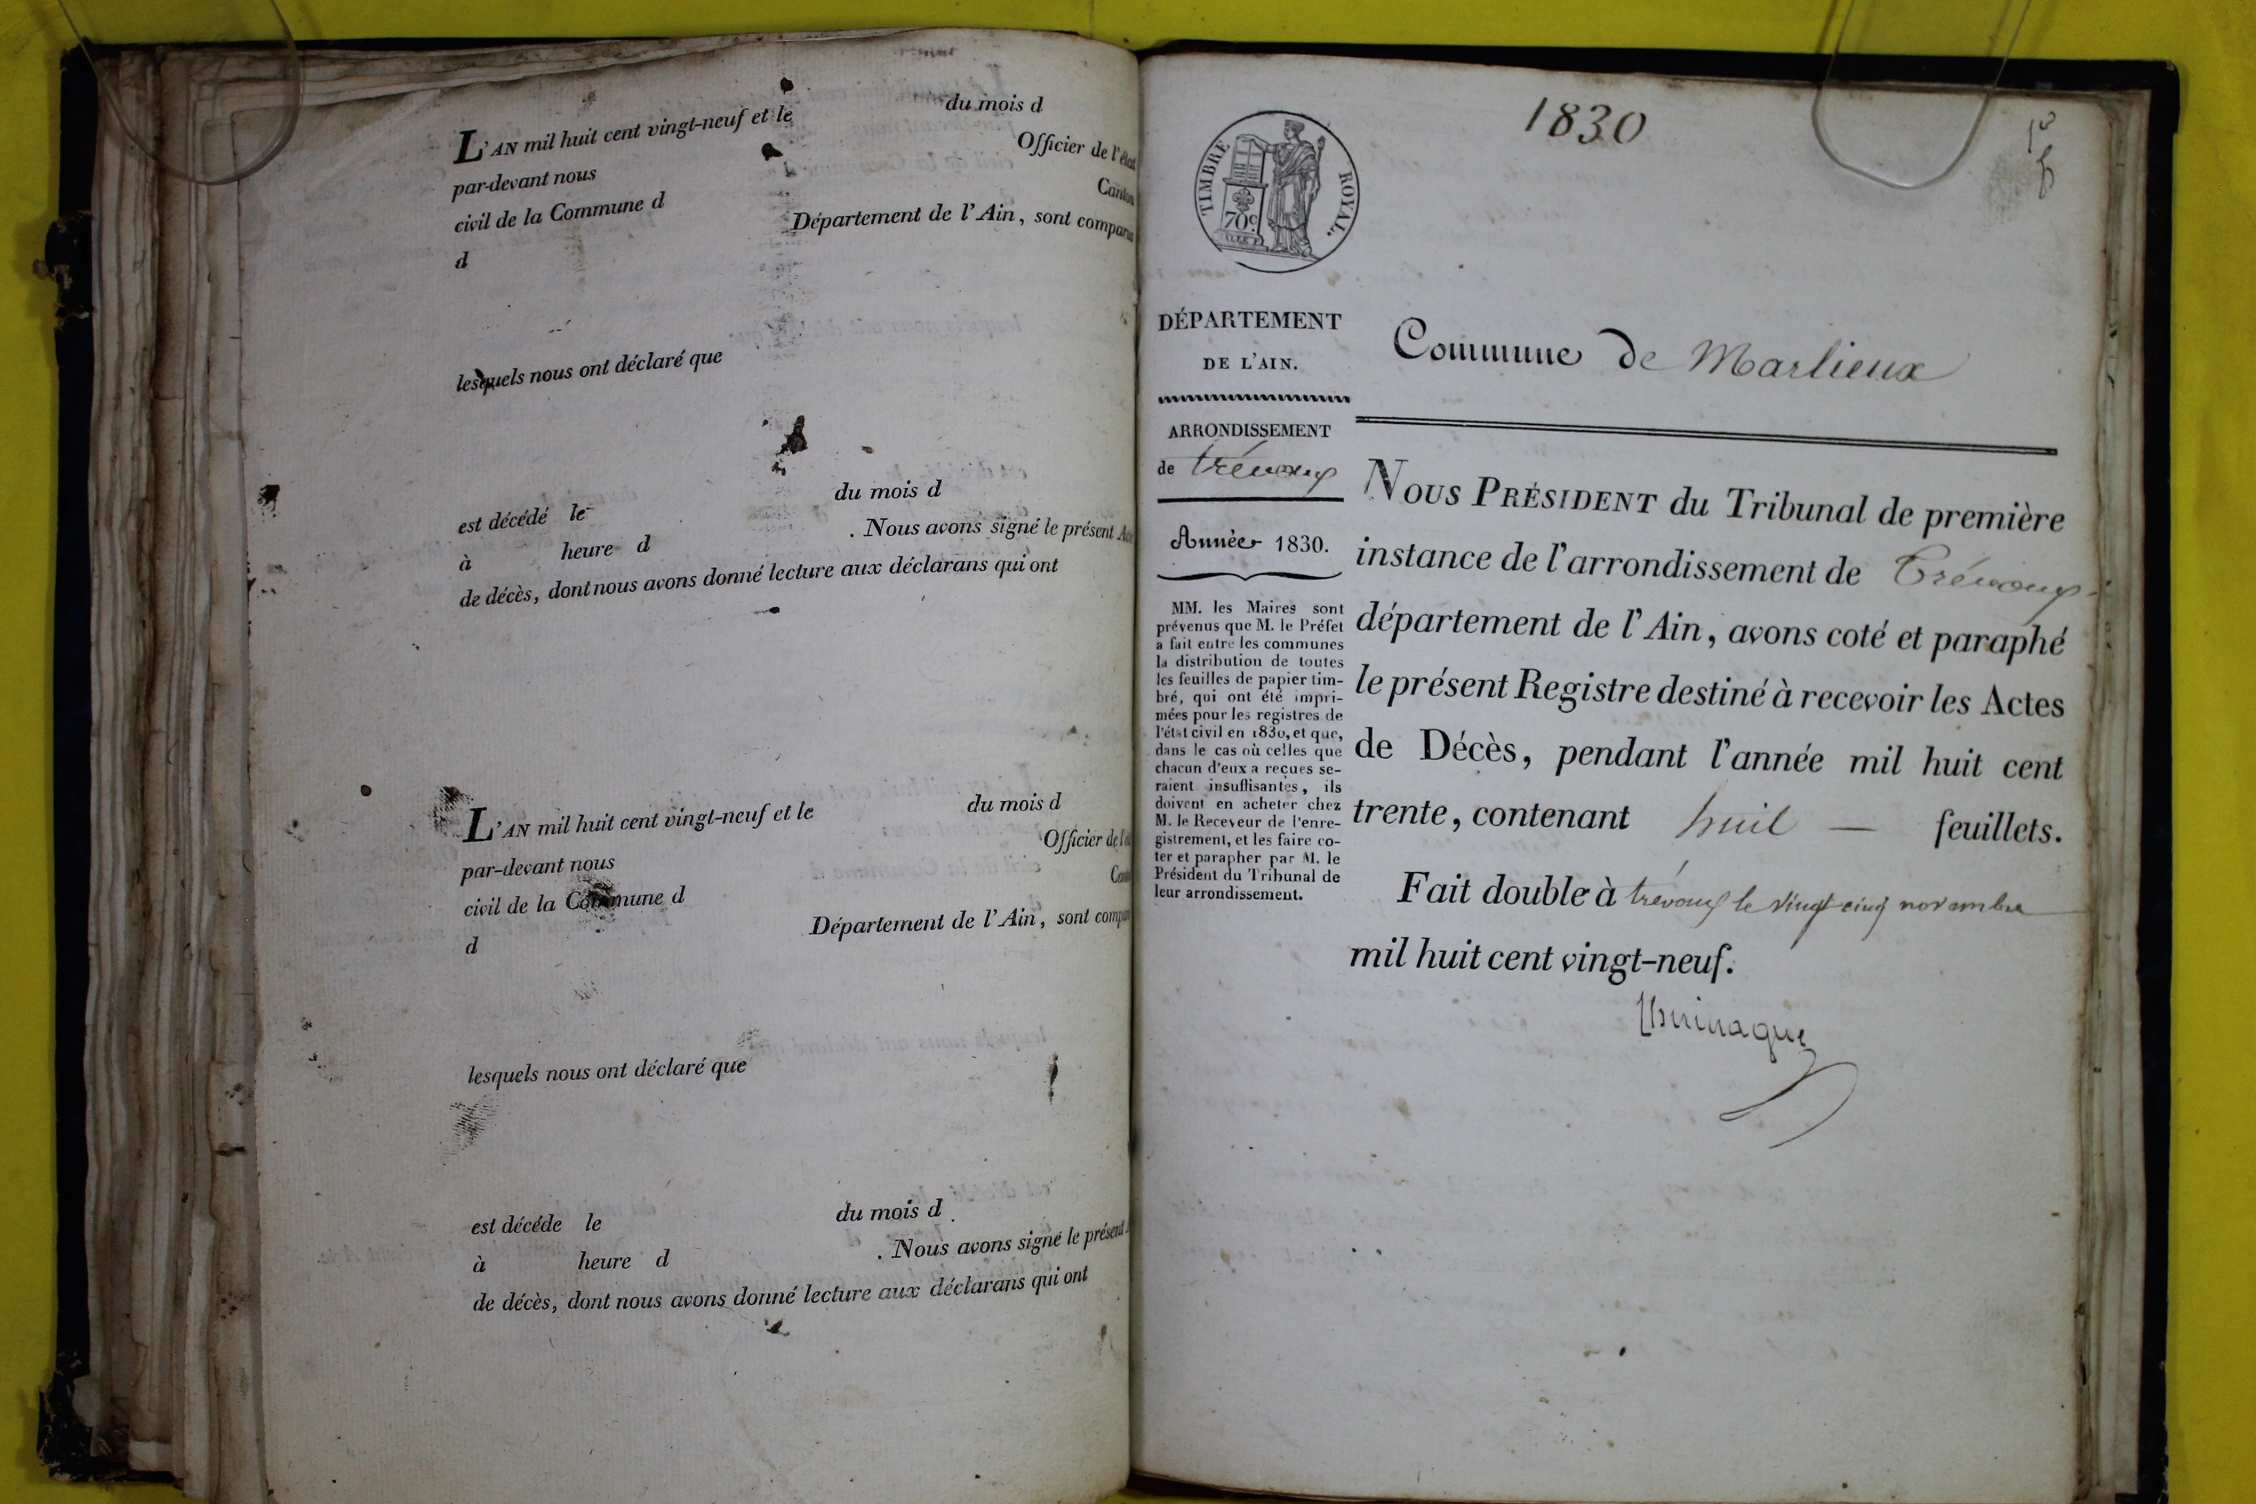 L'AN mil huit cent vingt-neuf et le du mois d
par-devant nous Officier de l'état
civil de la Commune d Canton
d Département de l'Ain, sont comparus
lesquels nous ont déclaré que
est décédé le du mois d
à heure d . Nous avons signé le présent Acte
de décès, dont nous avons donné lecture aux déclarans qui ont
L'AN mil huit cent vingt-neuf et le du mois d
par-devant nous Officier de l'é
civil de la Commune d Can
d Département de l'Ain, sont compar
lesquels nous ont déclaré que
est décéde le du mois d
à heure d . Nous avons signé le présent
de décès, dont nous avons donné lecture aux déclarans qui ont
1830
TIMBRE ROYAL.
70 c.
DÉPARTEMENT
DE L'AIN.
ARRONDISSEMENT
de trévoux
Année 1830.
MM. les Maires sont
prévenus que M. le Préfet
a fait entre les communes
la distribution de toutes
les feuilles de papier tim-
bré, qui ont été impri-
mées pour les registres de
l'état civil en 1830, et que,
dans le cas où celles que
chacun d'eux a reçues se-
raient insuffisantes, ils
doivent en acheter chez
M. le Receveur de l'enre-
gistrement, et les faire co-
ter et parapher par M. le
Président du Tribunal de
leur arrondissement.
Commune de Marlieux
NOUS PRÉSIDENT du Tribunal de première
instance de l'arrondissement de Trévoux
département de l'Ain, avons coté et paraphé
le présent Registre destiné à recevoir les Actes
de Décès, pendant l'année mil huit cent
trente, contenant huit — feuillets.
Fait double à trévoux le vingt cinq novembre
mil huit cent vingt-neuf.